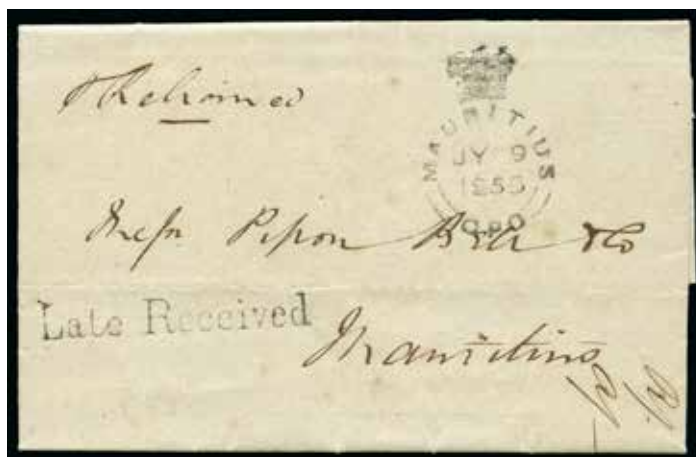 MAURITIUS
JY 9
G.P.O
Messrs Pipon Bell & Co
Late Received
Mauritius